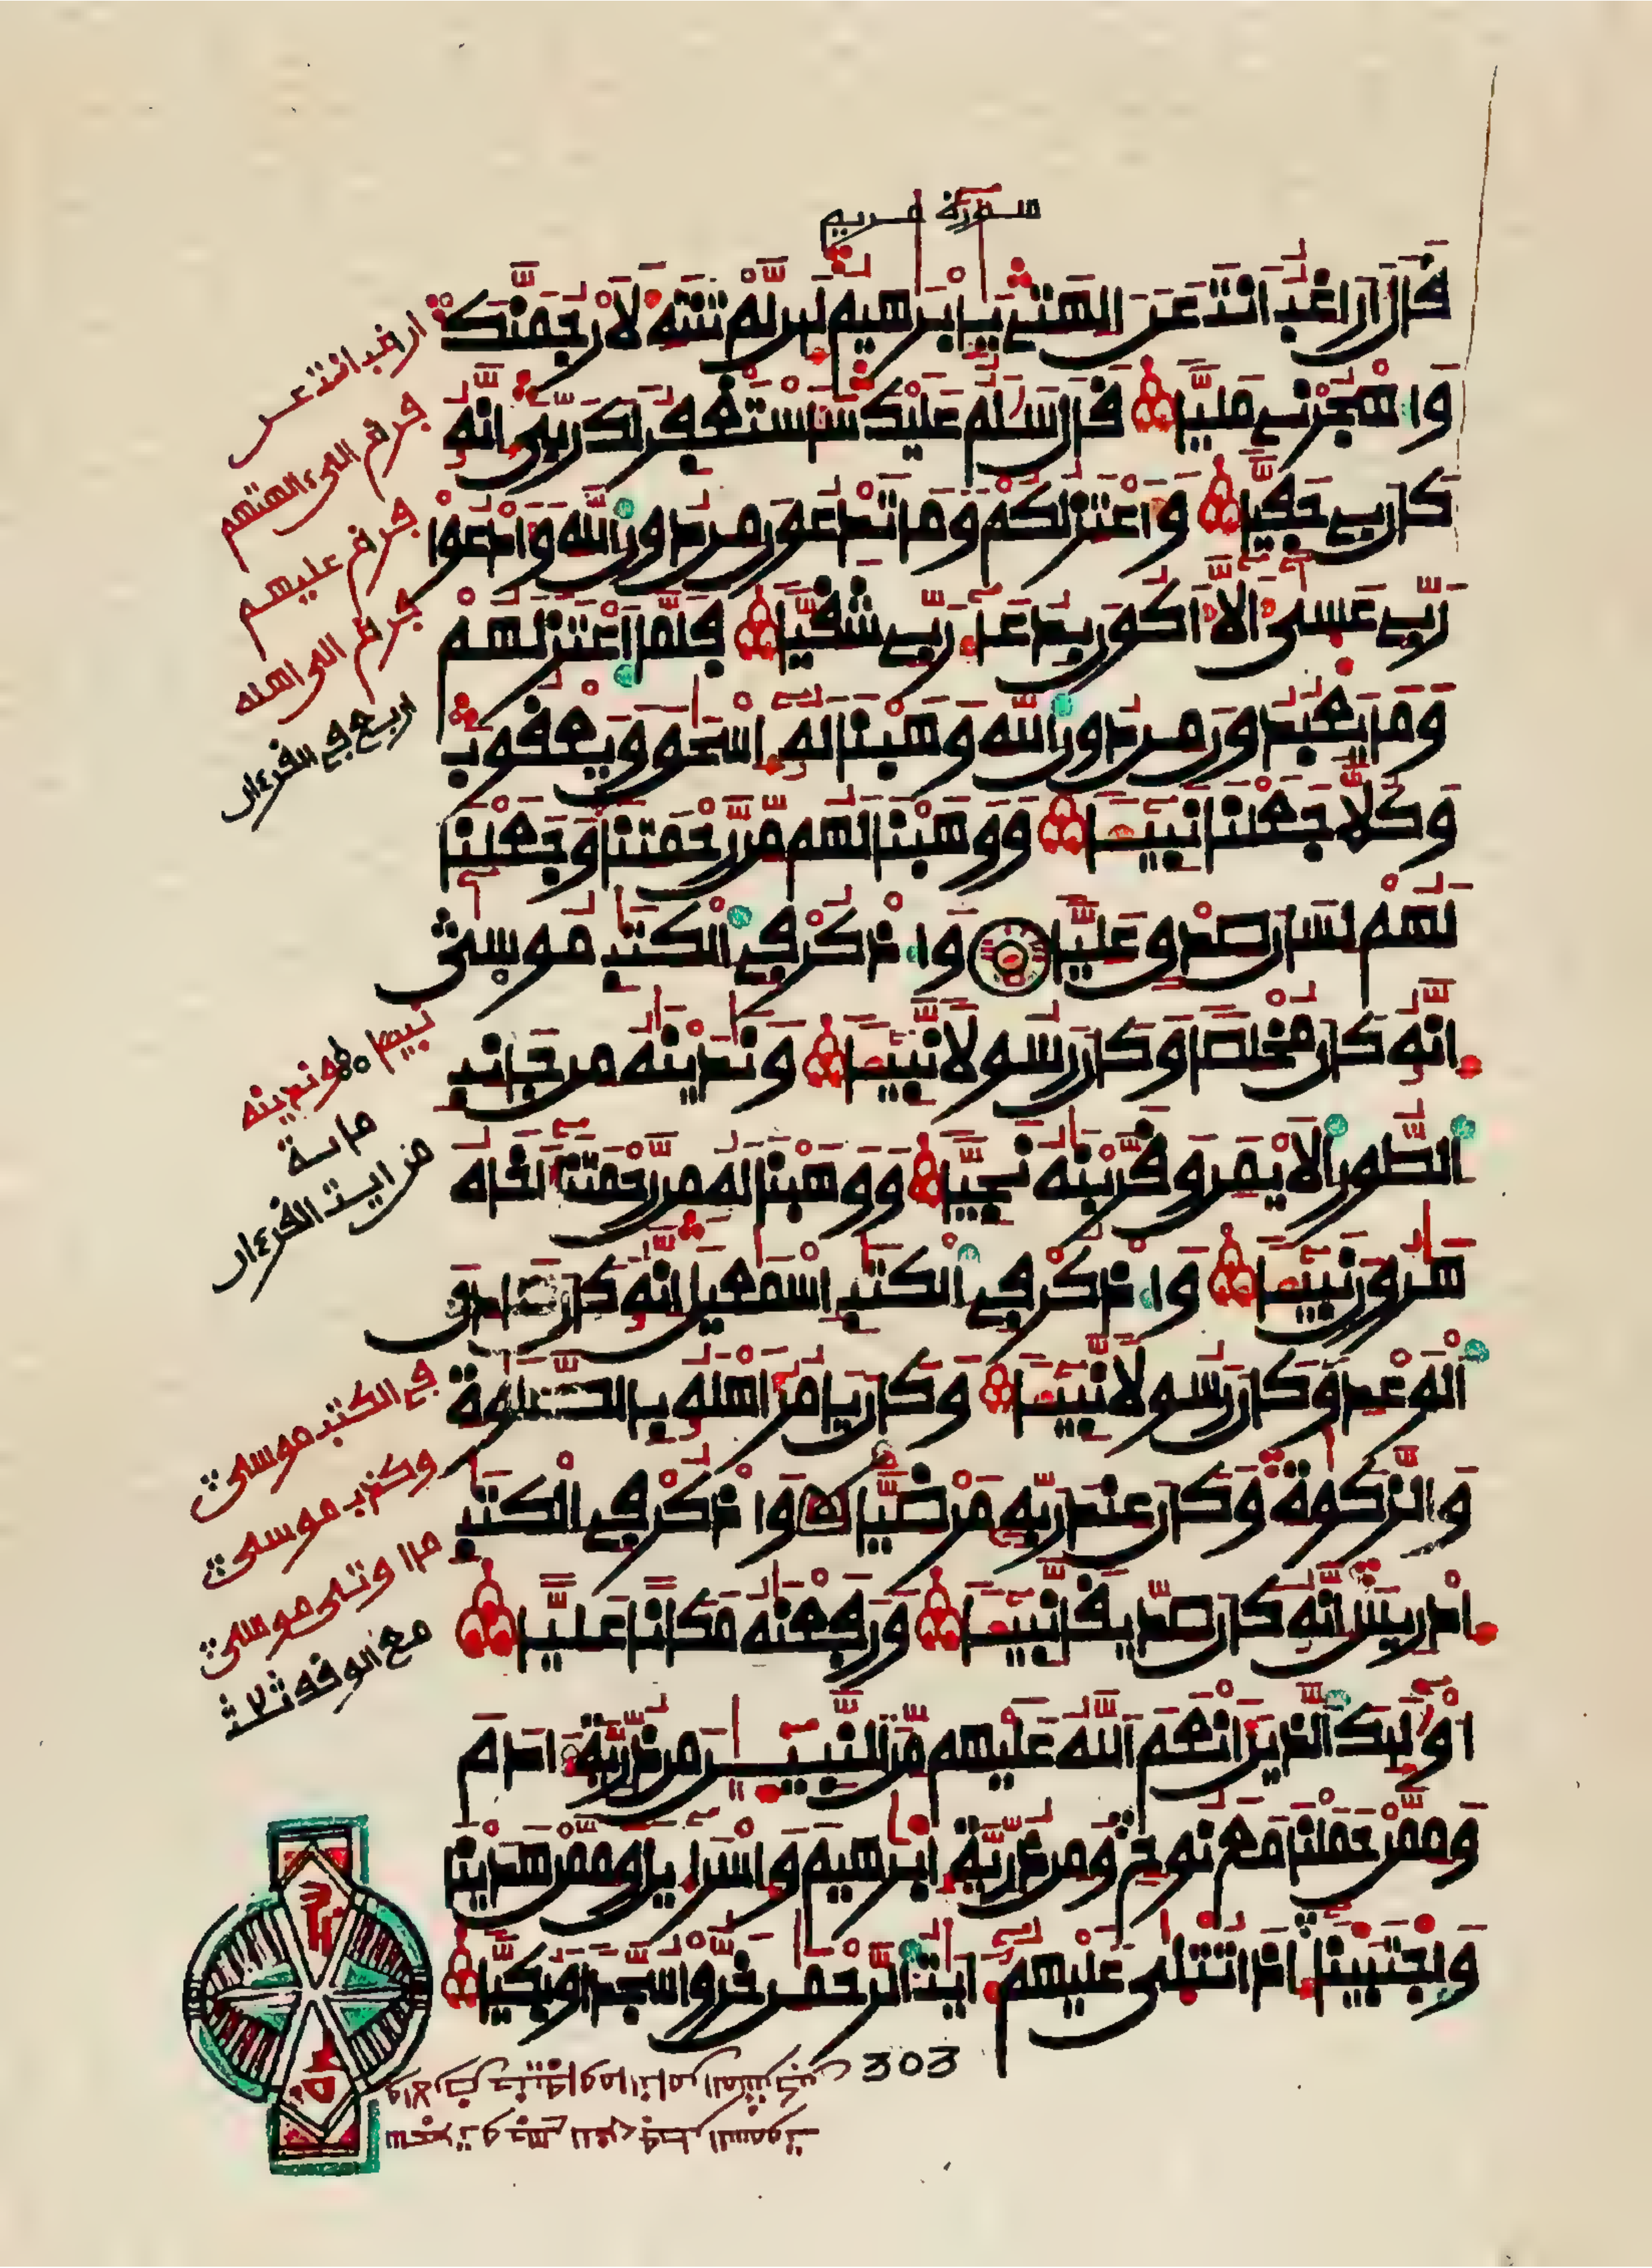 سورة مريم
قال أراغب انت عن الهتي يابرهيم لين لم تنته لأرجمنك
واهجرني مليا قال سلم عليك سأستغفر لك ربي إنه
كان بي حفيا وأعتزلكم وما تدعون من دون الله وأدعوا
ربي عسى ألا أكون بدعاء ربي شقيا فلما اعتزلهم
وما يعبدون من دون الله وهبنا له إسحق ويعقوب
وكلا جعلنا نبيئا ووهبنا لهم من رحمتنا وجعلنا
لهم لسان صدق عليا واذكر في الكتب موسى
إنه كان مخلصا وكان رسولا نبيئا وندينه من جانب
الطور الأيمن وقربنه نجيا ووهبنا له من رحمتنا أخاه
هرون نبيئا واذكر في الكتب إسمعيل إنه كان صادق
الوعد وكان رسولا نبيئا وكان يامر أهله بالصلوة
والزكوة وكان عند ربه مرضيا واذكر في الكتب
إدريس إنه كان صديقا نبيئا ورفعنه مكانا عليا
أوليك الذين أنعم الله عليهم من النبيين من ذرية ادم
وممن حملنا مع نوح ومن ذرية إبرهيم وإسراءيل وممن هدينا
واجتبينا إذا تتلى عليهم ايت الرحمن خروا سجدا وبكيا
اراغب انت عن
فراغ الى ءالهتهم
فراغ عليهم
فراغ الى اهله
اربع في القرءان
نبيا وندينه
ماية
من ايت القرءان
في الكتب موسى
وكذب موسى
ما اوتى موسى
303